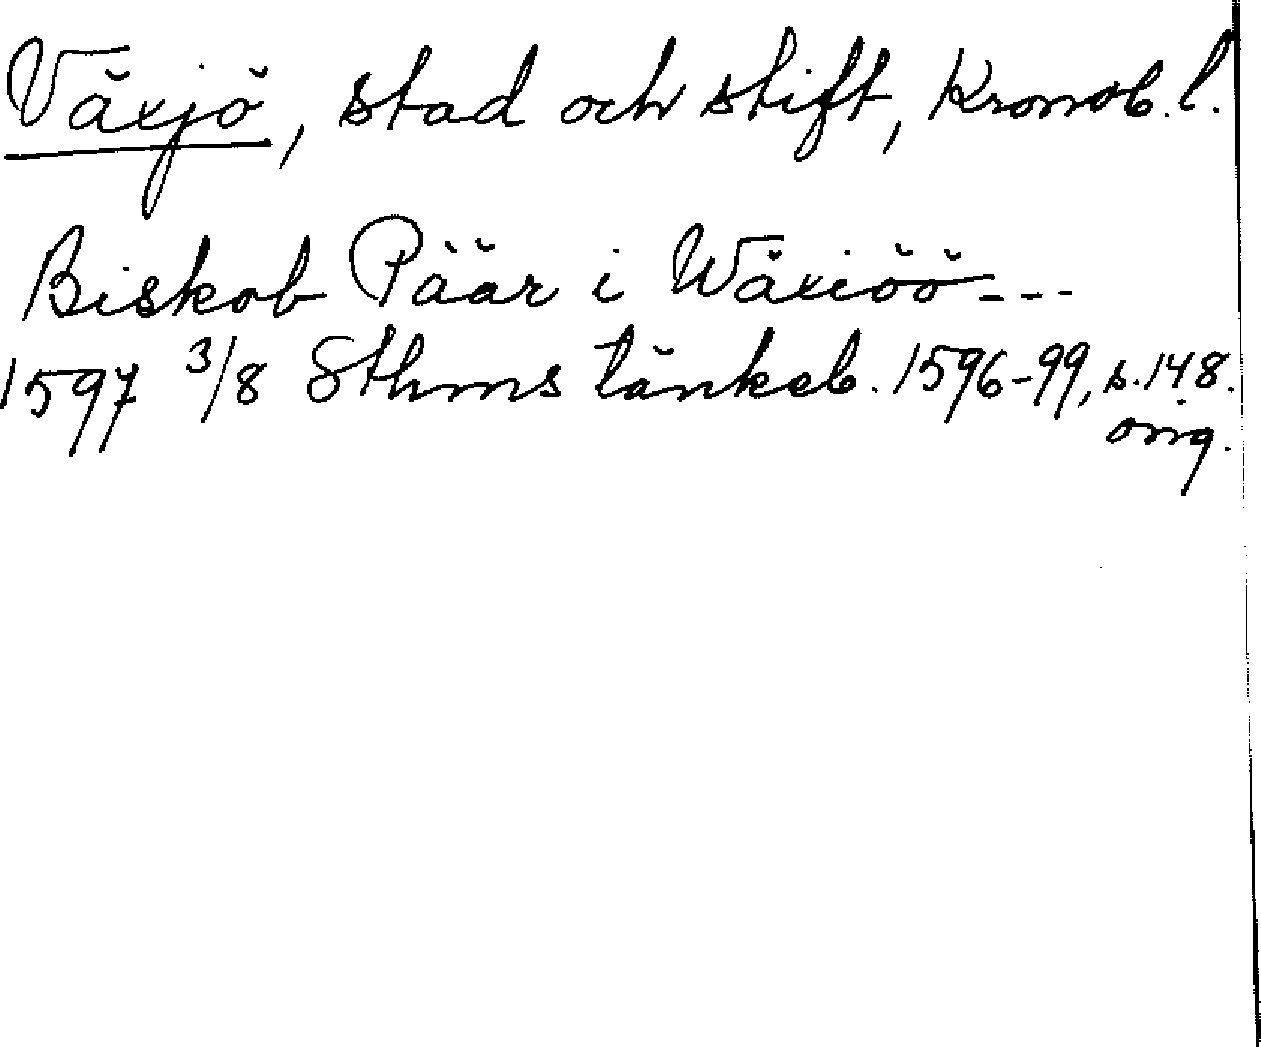 Växjö, stad och stift, Kronob. l.
Biskob Päär i Wäxiöö - - -
1597 3/8 Sthms tänkeb. 1596-99, s. 148.
orig.